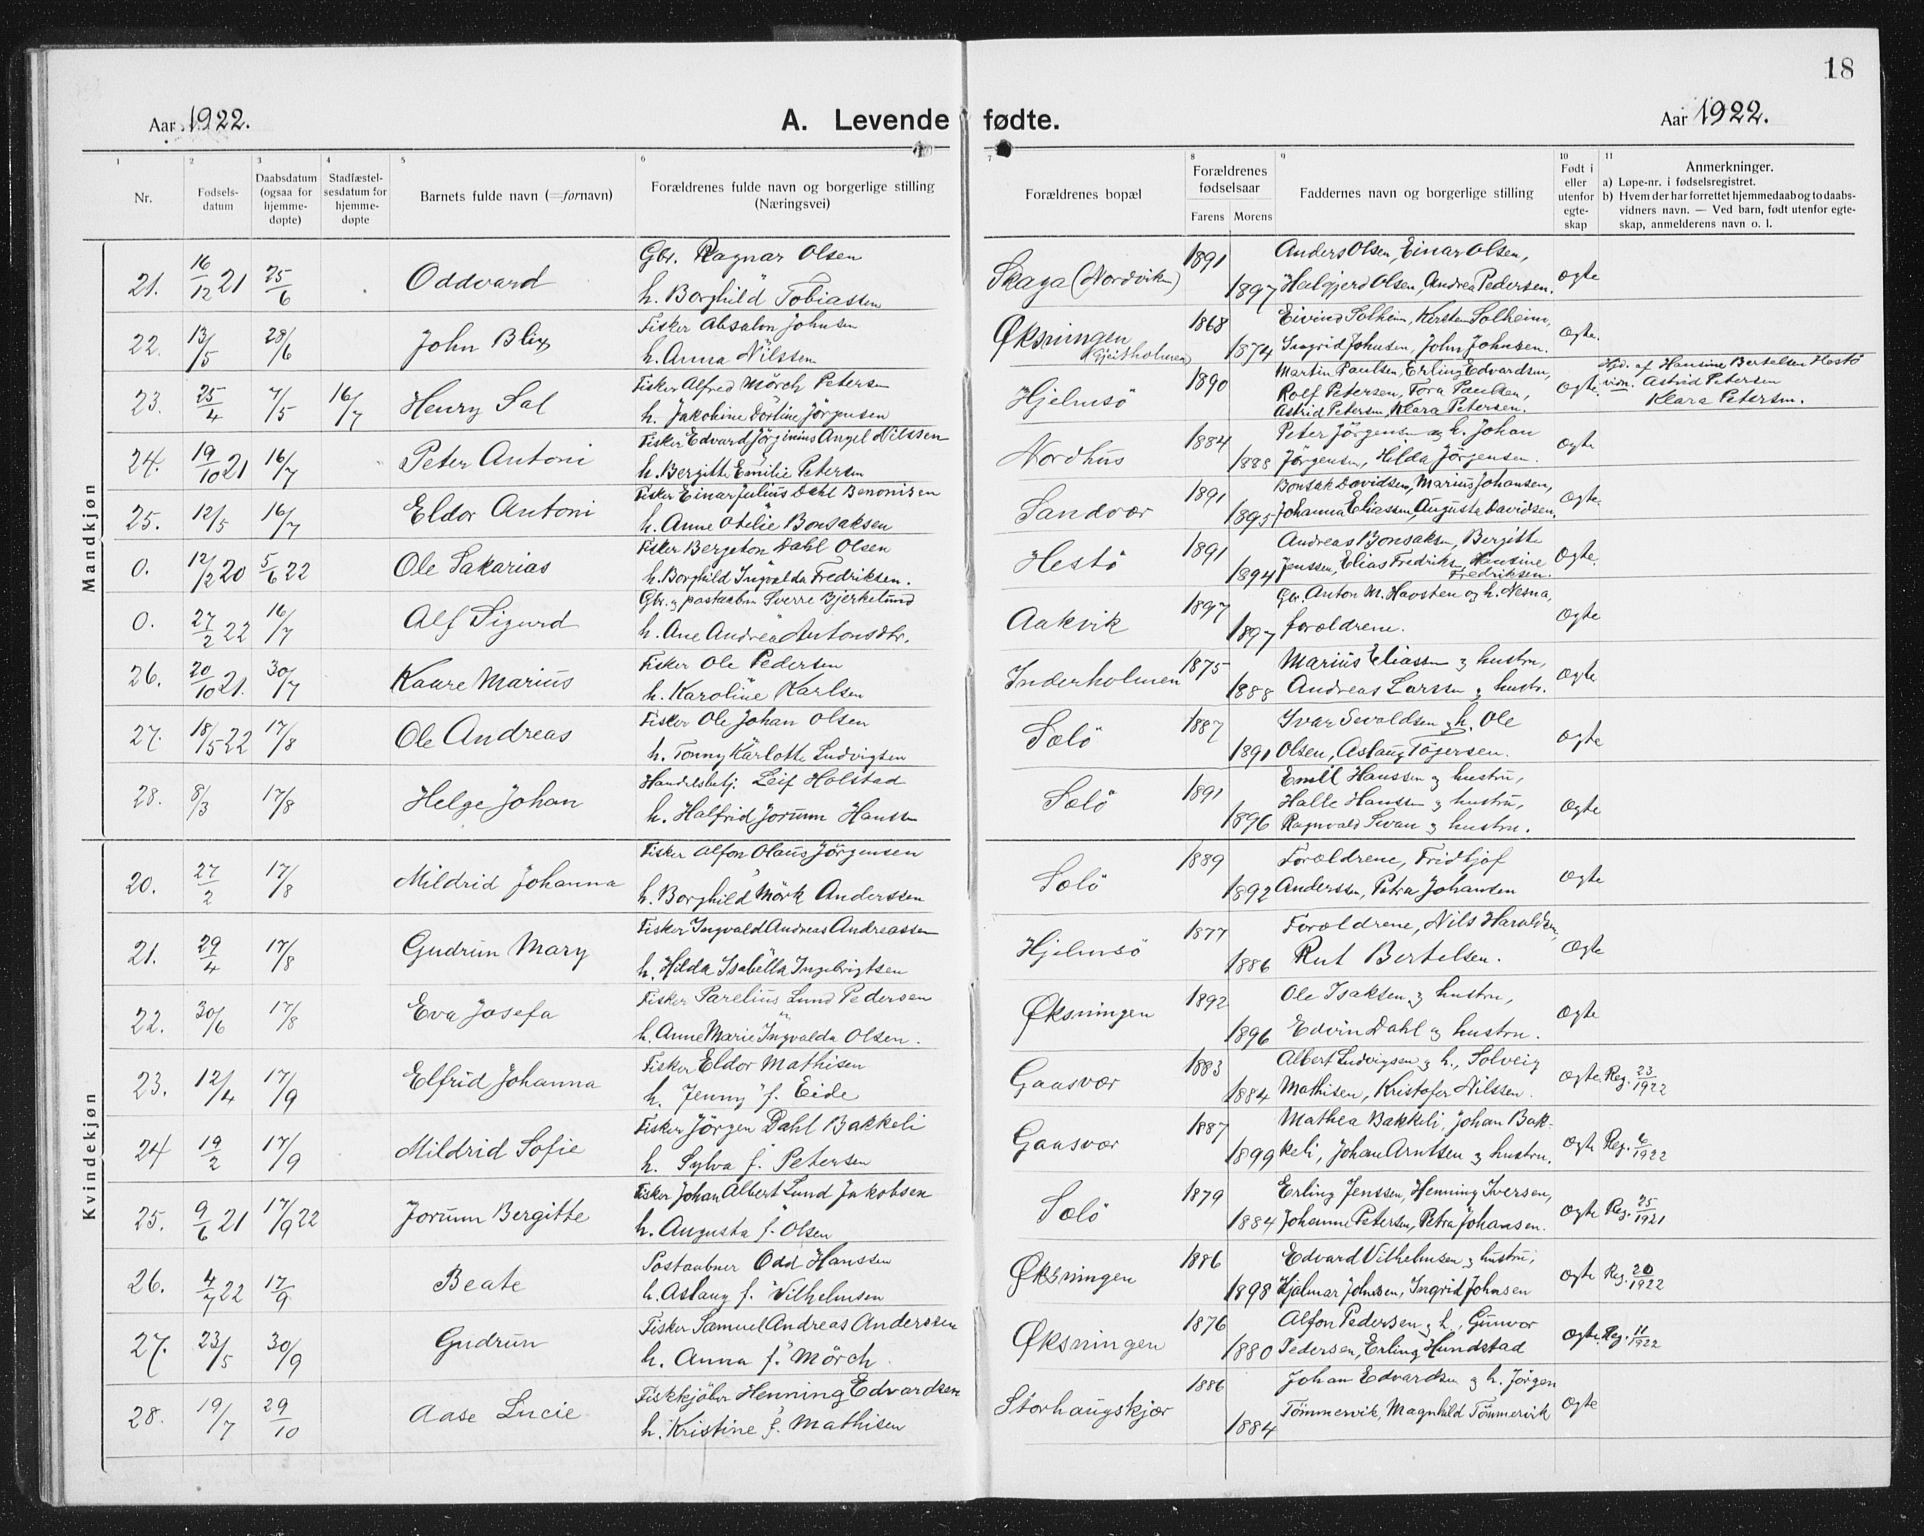 18
Aar 1922. A. Levende fødte. Aar 1922.
1 2 3 4 5 6 7 8 9 10 11
Nr. Fødsels-datum Daabsdatum (ogsaa for hjemme-døpte) Stadfæstel-sesdatum for hjemme-døpte Barnets fulde navn (=fornavn) Forældrenes fulde navn og borgerlige stilling (Næringsvei) Forældrenes bopæl Forældrenes fødselsaar Farens Morens Faddernes navn og borgerlige stilling Født i eller utenfor egte-skap Anmerkninger.
a) Løpe-nr. i fødselsregistret.
b) Hvem der har forrettet hjemmedaab og to daabs-vidners navn. — Ved barn, født utenfor egte-skap, anmelderens navn o. l.
Mandkjøn
Gbr. Ragnar Olsen 1891 Anders Olsen, Einar Olsen,
21. 16/12 21 25/6 Oddvard h. Borghild Tobiassen Skaga (Nordviken) 1897 Olsen, Andrea Pedersen. ægte
Fisker Absalon Johnsen 1868 Eivind Solheim, Kirsten Solheim,
22. 13/5 28/6 John Blix h. Anna Nilssen Øksningen 1874 Ingrid Johnsen, John Johnsen. ægte.
Fisker Alfred Mörch Petersen 1890 Martin Paulsen, Erling Edvardsen, Hjd. af Hansine Bertelsen Hestö
23. 25/4 7/5 16/7 Henry Sal h. Jakobine Dortine Jörgensen Hjelmsö Rolf Petersen, Tora Paulsen, ægte. vidn. Astrid Petersen
Astrid Petersen, Klara Petersen. Klara Petersen.
Fisker Edvard Jörginius Angel Nilssen 1884 Peter Jörgensen og h. Johan
24. 19/10 21 16/7 Peter Antoni h. Bergitte Emilie Petersen Nordhus 1888 Jörgensen, Hilda Jörgensen. ægte
Fisker Einar Julius Dahl Benonisen 1891 Bonsak Davidsen, Marius Johansen,
25. 12/5 16/7 Eldor Antoni h. Anne Otelie Bonsaksen Sandvær 1895 Johanna Eliassen, Auguste Davidsen. ægte.
Fisker Bergeton Dahl Olsen 1891 Andreas Bonsaksen, Bergitte
0. 12/2 20 5/6 22 Ole Sakarias h. Borghild Ingvalda Fredriksen. Hestö 1894 Jenssen, Elias Fredriks, Hansine Fredriksen. ægte.
Gbr. og postaabn Sverre Bjerkelund 1897 Gbr. Anton M. Havsten og h. Nesna,
0. 27/2 22 16/7 Alf Sigurd h. Ane Andrea Antonsdtr. Aakvik 1897 forældrene. ægte
Fisker Ole Pedersen 1875 Marius Eliassen og hustru,
26. 20/10 21. 30/7 Kaare Marius h. Karoline Karlsen Inderholmen 1888 Andreas Larssen og hustr. ægte
Fisker Ole Johan Olsen 1887 Ivar Sevaldsen og h. Ole
27. 18/5 22 17/8 Ole Andreas h. Tonny Karlotte Ludvigsen Sælö 1891 Olsen, Aslaug Töjersen. ægte
Handelsbetj. Leif Holstad 1891 Emil Hanssen og hustru,
28. 8/3 17/8 Helge Johan h. Halfrid Jorunn Hanssen Sælö 1896 Halle Hanssen og hustru, ægte
Ragnvald Svan og hustru.
Kvindekjøn
Fisker Alfon Olaus Jörgensen 1889 Forældrene, Fridtjof
20. 27/2 17/8 Mildrid Johanna h. Borghild Mörk Anderssen Sælö 1892 Anderssen, Petra Johansen ægte
Fisker Ingvald Andreas Andreassen 1877 Forældrene, Nils Haraldsen,
21. 29/4 17/8 Gudrun Mary h. Hilda Isabella Ingebrigtsen Hjelmsö 1886 Rut Bertelsen. ægte
Fisker Parelius Lund Pedersen 1892 Ole Isaksen og hustru,
22. 30/6 17/8 Eva Josefa h. Anne Marie Ingvalda Olsen. Øksningen 1896 Edvin Dahl og hustru. ægte
Fisker Eldor Mathisen 1883 Albert Ludvigsen og h., Solveig
23. 12/4 17/9 Elfrid Johanna h. Jenny f. Eide Gaasvær 1884 Mathisen, Kristofer Nilssen. ægte Reg. 23/1922
Fisker Jörgen Dahl Bakkeli 1887 Mathea Bakkeli, Johan Bak-
24 19/2 17/9 Mildrid Sofie h. Sylva f. Petersen Gaasvær 1899 keli, Johan Arntsen og hustru. ægte Reg. 6/1922
Fisker Johan Albert Lund Jakobsen 1879 Erling Jenssen, Henning Iversen,
25. 9/6 21 17/9 22 Jorunn Bergitte h. Augusta f. Olsen Sælö 1884 Johanne Petersen, Petra Johansen. ægte Reg. 25/1921
Postaabner Odd Hanssen 1886 Edvard Vilhelmsen og hustru,
26. 4/7 22 17/9 Beate h. Aslaug f. Vilhelmsen Øksningen 1898 Hjalmar Johnsen, Ingrid Johnsen ægte Reg. 20/1922
Fisker Samuel Andreas Anderssen 1876 Alfon Pedersen og h., Gunvor
27. 23/5 30/9 Gudrun h. Anna f. Mörch. Øksningen 1880 Pedersen, Erling Hundstad ægte. Reg. 11/1922
Fiskkjöber Henning Edvardsen 1886 Johan Edvardsen og h. Jörgen
28. 19/7 29/10 Aase Lucie h. Kristine f. Mathisen Storhaugskjær 1884 Tömmervik, Magnhild Tömmervik ægte